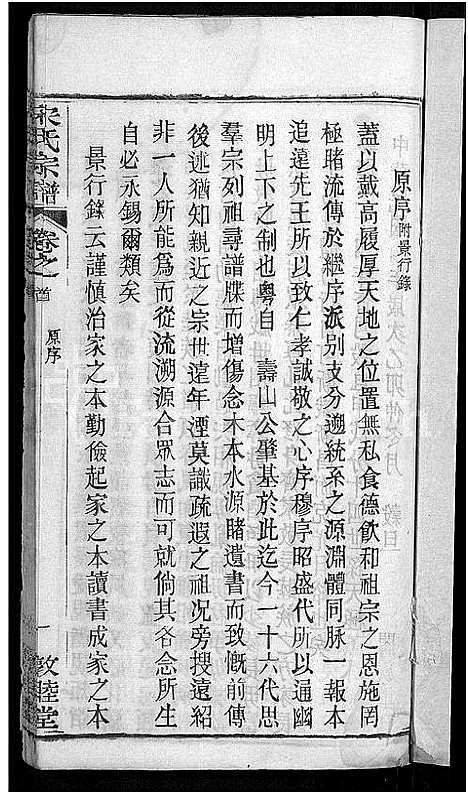 原序附景行錄
蓋以戴高履厚天地之位置無私食德飲和祖宗之恩施罔
極睹流傳於繼序派别支分遡統系之源淵體同脉一報本
追遠先王所以致仁孝誠敬之心序穆序昭盛代所以通幽
明上下之制也粵自 壽山公肇基於此迄今一十六代思
羣宗列祖尋譜牒而增傷念木本水源睹遺書而致慨前傳
後述猶知親近之宗世遠年湮莫識疏遐之祖况旁搜遠紹
非一人所能為而從流溯源合眾志而可就倘其各念所生
自必永錫爾類矣
景行錄云謹慎治家之本勤儉起家之本讀書成家之本
宋氏宗譜
卷之首
原序
一
敦睦堂